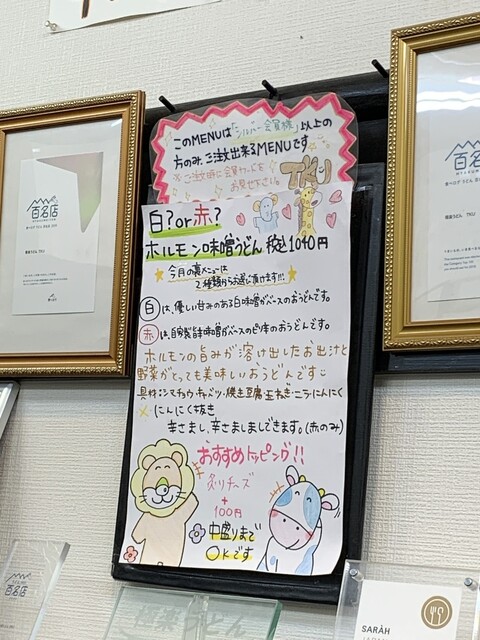 このMENUは「シルバー会員様」以上の
方のみ、ご注文出来るMENUです
※ご注文時に会員カードを
お見せ下さい。
TKU
白?or赤?
ホルモン味噌うどん 税込1040円
今月の裏メニューは
2種類からお選び頂けます!!!
白は、優しい甘みのある白味噌がベースのおうどんです。
赤は、自家製旨辛味噌がベースのピリ辛のおうどんです。
ホルモンの旨みが溶け出したお出汁と
野菜がとっても美味しいおうどんです
具材:シマチョウ・キャベツ・焼き豆腐・玉ねぎ・ニラ・にんにく
にんにく抜き
辛さまし、辛さましましできます。(赤のみ)
おすすめトッピング!!
炙りチーズ
+
100円
中盛りまで
OKです
百名店
百名店
百名店
SARAH